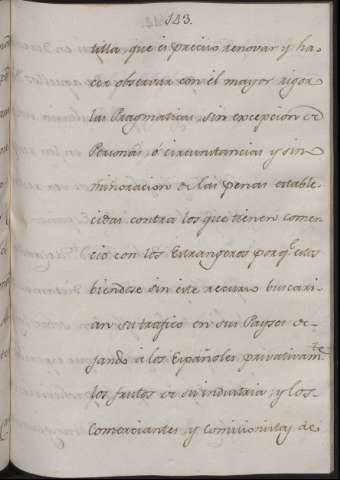 143.
tilla, que es preciso renovar y ha-
cer observar con el mayor rigor
las Pragmaticas, sin excepcion de
Personas, ó circunstancias y sin
minoracion de las penas estable-
cidas contra los que tienen comer-
cio con los Estrangeros porq.e estos
biendose sin este recurso buscari-
an su trafico en sus Payses de-
jando á los Españoles privativam.te
los frutos de su industria, y los
Comerciantes y comisionistas de